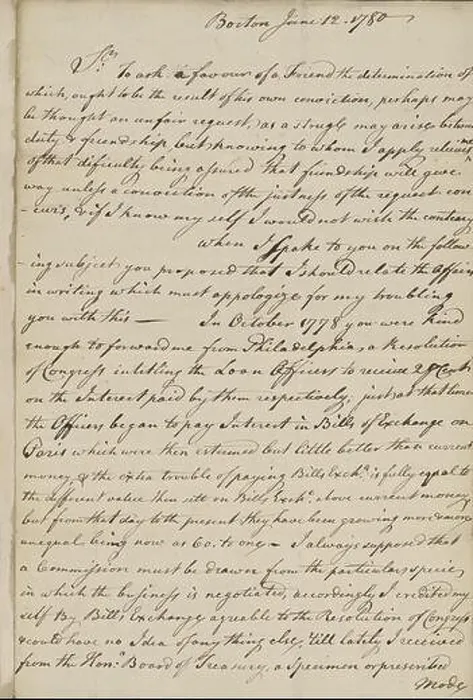 Boston June 12. 1780
Sr,
To ask a favour of a Friend the determination of
which, ought to be the result of his own conviction, perhaps may
be thought an unfair request, as a strugle may arise between
duty & friendship, but knowing to whom I apply relieves me
of that difficulty being assured that friendship will give
way unless a conviction of the justness of the request con
-curs, & if I know my self I would not wish the contrary
When I Spake to you on the follow
-ing subject, you proposed that I should relate the Affair
in writing which must appologize for my troubling
you with this — In October 1778 you were kind
enough to forward me from Philadelphia, a Resolution
of Congress intitling the Loan Officers to receive
on the Interest paid by them respectively, just at that time
the Officers began to pay Interest in Bills of Exchange on
Paris which were then esteemed but little better than current
money, & the extra trouble of paying Bills Exche. is fully equal to
the different value then sett on Bills Exche. above current money
but from that day to the present they have been growing more & more
unequal being now as 60. to one — I always supposed that
a Commission must be drawn from the particular species
in which the business is negotiated, accordingly I credited my
self By Bills Exchange agreable to the Resolution of Congress
& could have no Idea of any thing else, 'till lately I received
from the Hone. Board of Treasury, a Specimen or prescribed
Mode